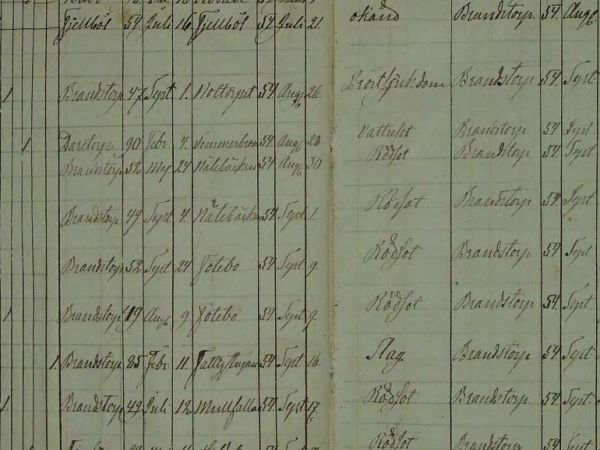 Fjellbôl 54 Juli 16 Fjellbôl 54 Juli 21. okänd Brandstorp 54. Aug
1 Brandstorp 47 Sept 1. 54 Aug 26 Bröstsjukdom Brandstorp 54. Sept
1 Daretorp 90 Febr 4. 54. Aug 28 Vattusot Brandstorp 54. Sept
Brandstorp 52. Maj 24 Nålebäcken 54 Aug 30 Rödsot Brandstorp 54. Sept
Brandstorp 49 Sept 4. Nålebäcken 54 Sept 1. Rödsot Brandstorp 54. Sept
Brandstorp 52 Sept 24 Jôtebo 54 Sept 9. Rödsot Brandstorp 54. Sept
1 Brandstorp 19 Aug 9 Jôtebo 54. Sept 9. Rödsot Brandstorp 54. Sept
1 Brandstorp 85 Febr 11. 54 Sept 16. Slag Brandstorp 54. Sept
1 Brandstorp 49 Juli 12 54. Sept 17. Rödsot Brandstorp 54. Sept.
Rödsot Brandstorp 54. Sept